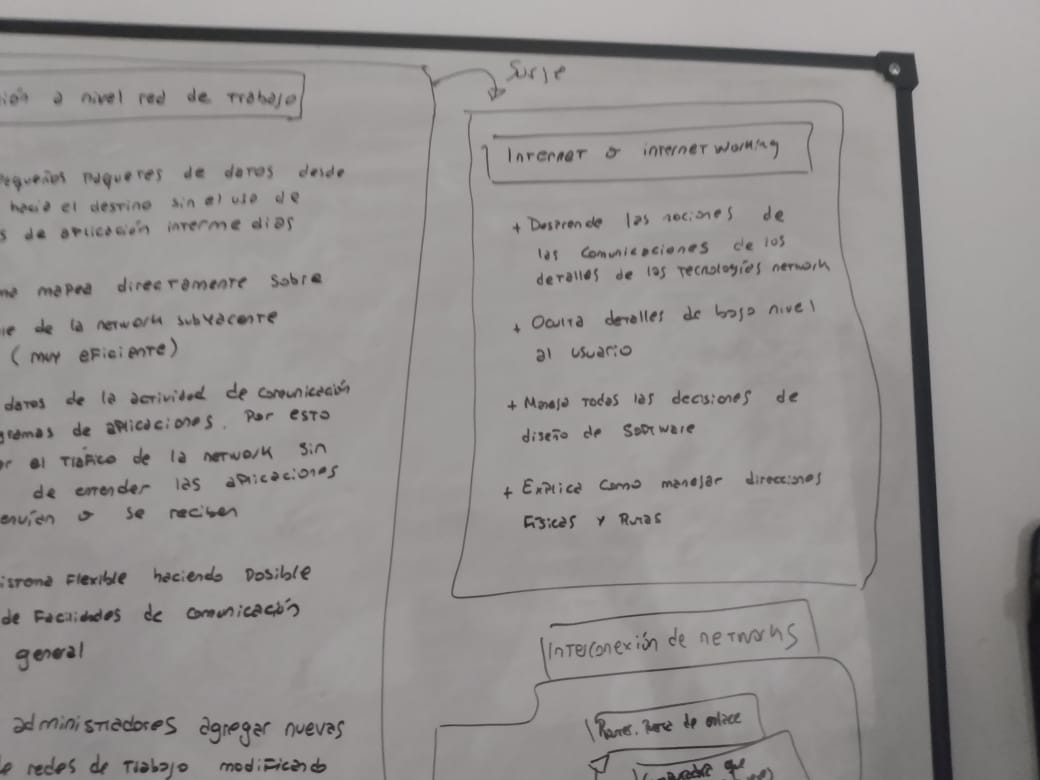 ión a nivel red de Trabajo
pequeños paquetes de datos desde
hacia el destino sin el uso de
s de aplicación intermedias
ma mapea directamente sobre
de la network subyacente
(muy eficiente)
datos de la actividad de comunicación
gramas de aplicaciones. Por esto
ar el tráfico de la network sin
de entender las aplicaciones
envían o se reciben
sistema flexible haciendo posible
de facilidades de comunicación
general
administradores agregar nuevas
e redes de trabajo modificando
Surje
Internet o internetworking
+ Desprende las nociones de
las comunicaciones de los
detalles de las tecnologíes network
+ Oculta detalles de bajo nivel
al usuario
+ Maneja todas las decisiones de
diseño de Software
+ Explica como manejar direcciones
físicas y Rutas
Interconexión de networks
de enlace
que